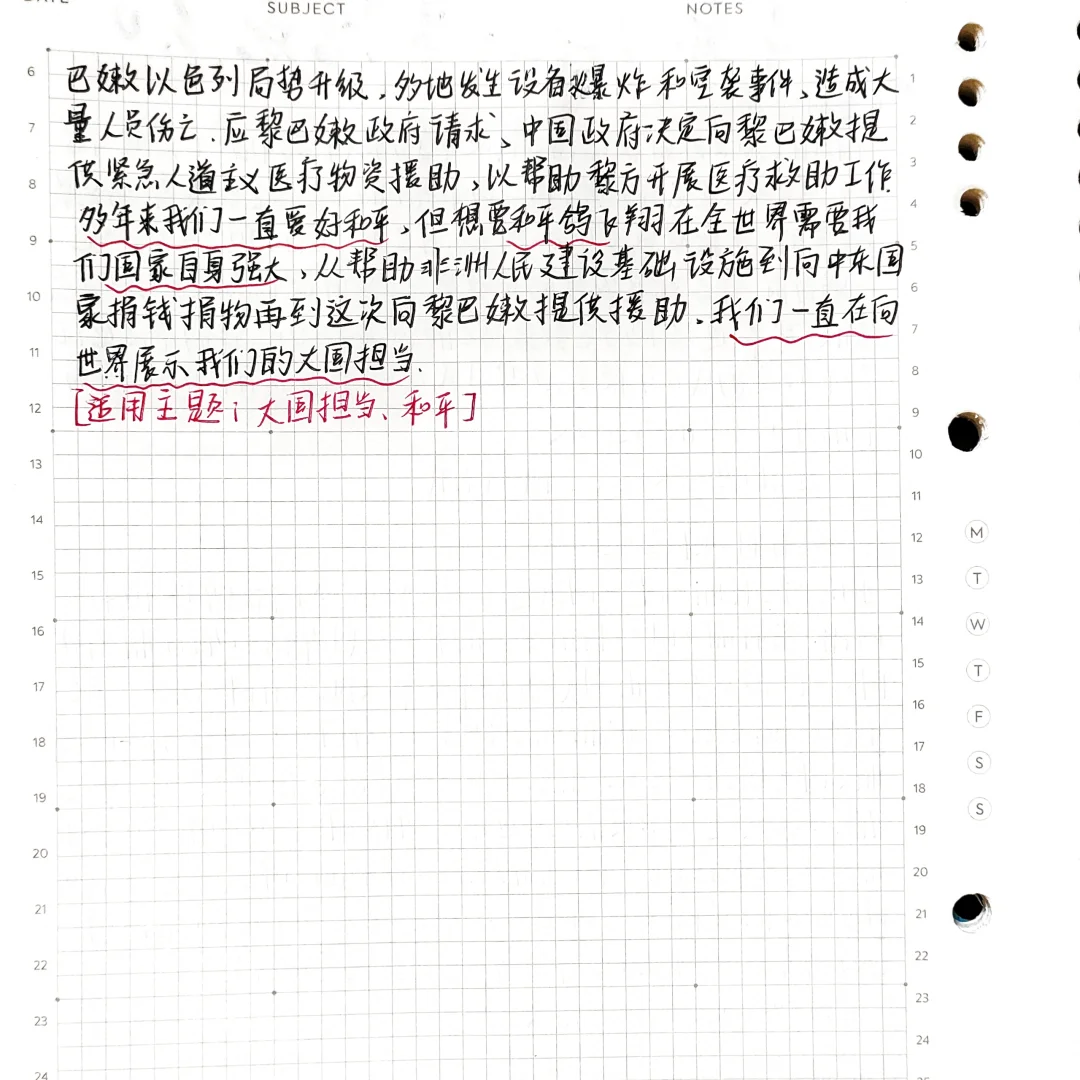 SUBJECT NOTES
巴嫩以色列局势升级,多地发生设备爆炸和空袭事件、造成大
量人员伤亡.应黎巴嫩政府请求、中国政府决定向黎巴嫩提
供紧急人道主义医疗物资援助,以帮助黎方开展医疗救助工作
多年来我们一直爱好和平,但想要和平鸽飞翔在全世界需要我
们国家自身强大,从帮助非洲人民建设基础设施到向中东国
家捐钱捐物再到这次向黎巴嫩提供援助.我们一直在向
世界展示我们的大国担当.
[适用主题;大国担当、和平]
6
7
8
9
10
11
12
13
14
15
16
17
18
19
20
21
22
23
24
1
2
3
4
5
6
7
8
9
10
11
12
13
14
15
16
17
18
19
20
21
22
23
24
M
T
W
T
F
S
S